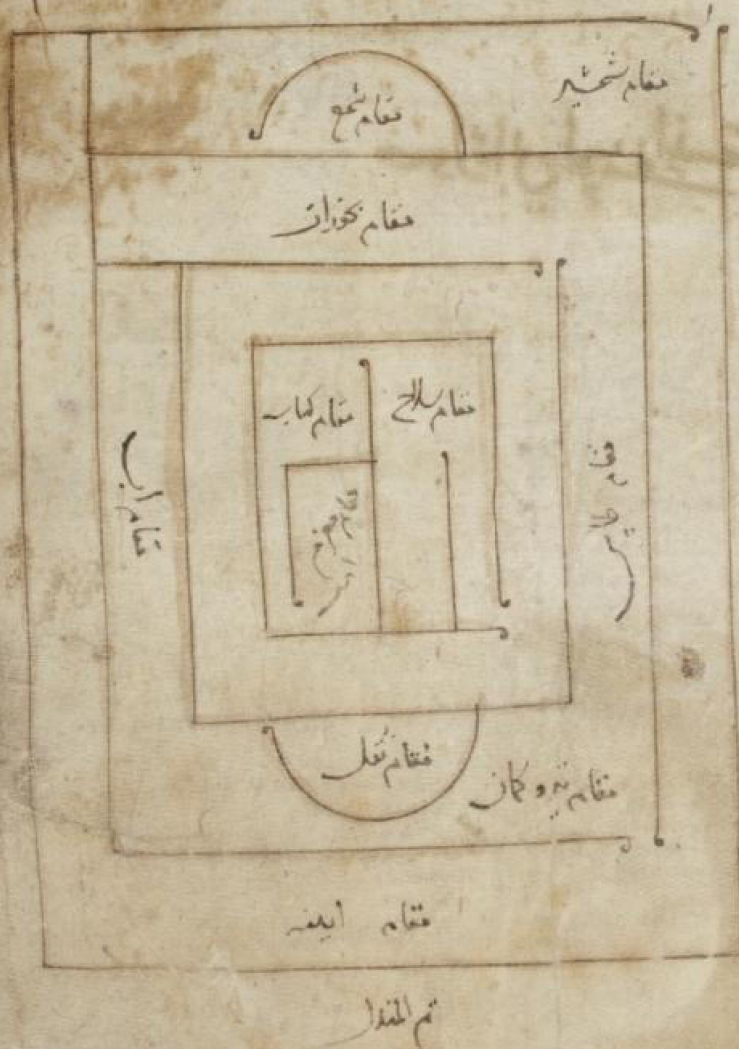 مقام شمشیر
مقام شمع
مقام بخوران
مقام سلاح
مقام کباب
مقام آب
مقام نقل
مقام تیر و کمان
مقام اینه
تم المندل